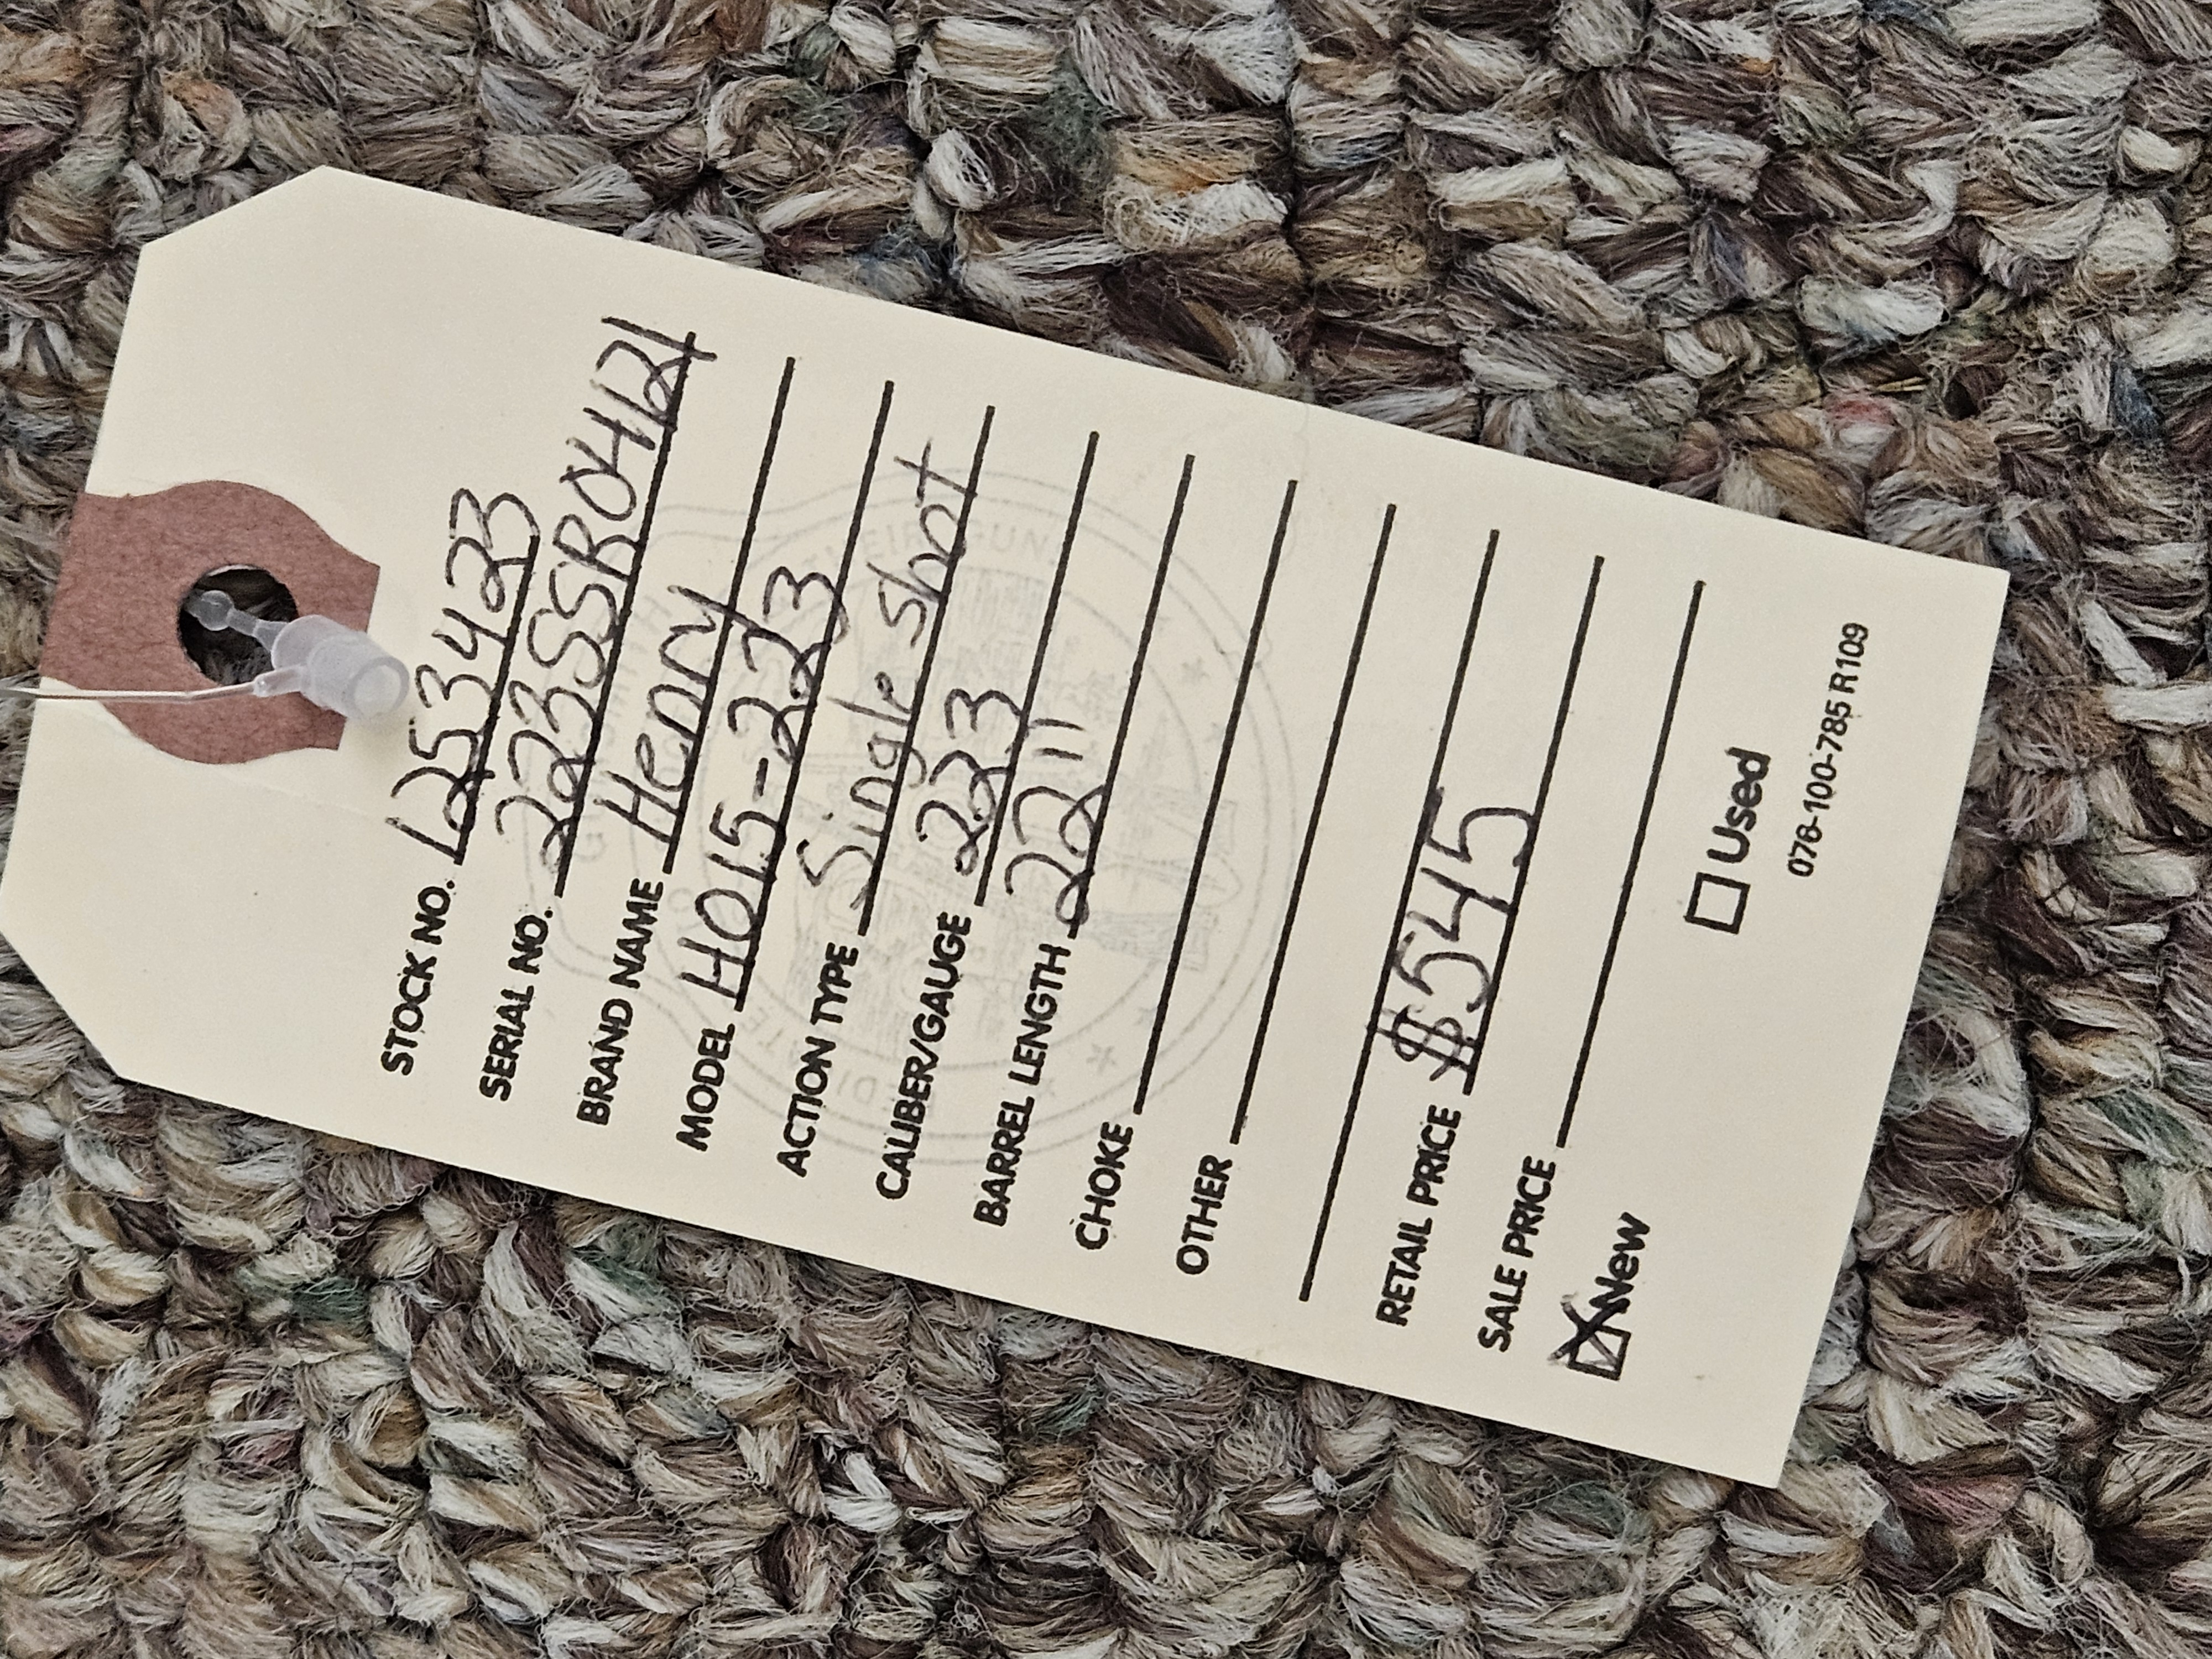 STOCK NO. 1253423
SERIAL NO. 223SSB04121
BRAND NAME Henry
MODEL H015-223
ACTION TYPE Single Shot
CALIBER/GAUGE 223
BARREL LENGTH 22"
CHOKE
OTHER
RETAIL PRICE $545
SALE PRICE
☒ New ☐ Used
078-100-785 R109